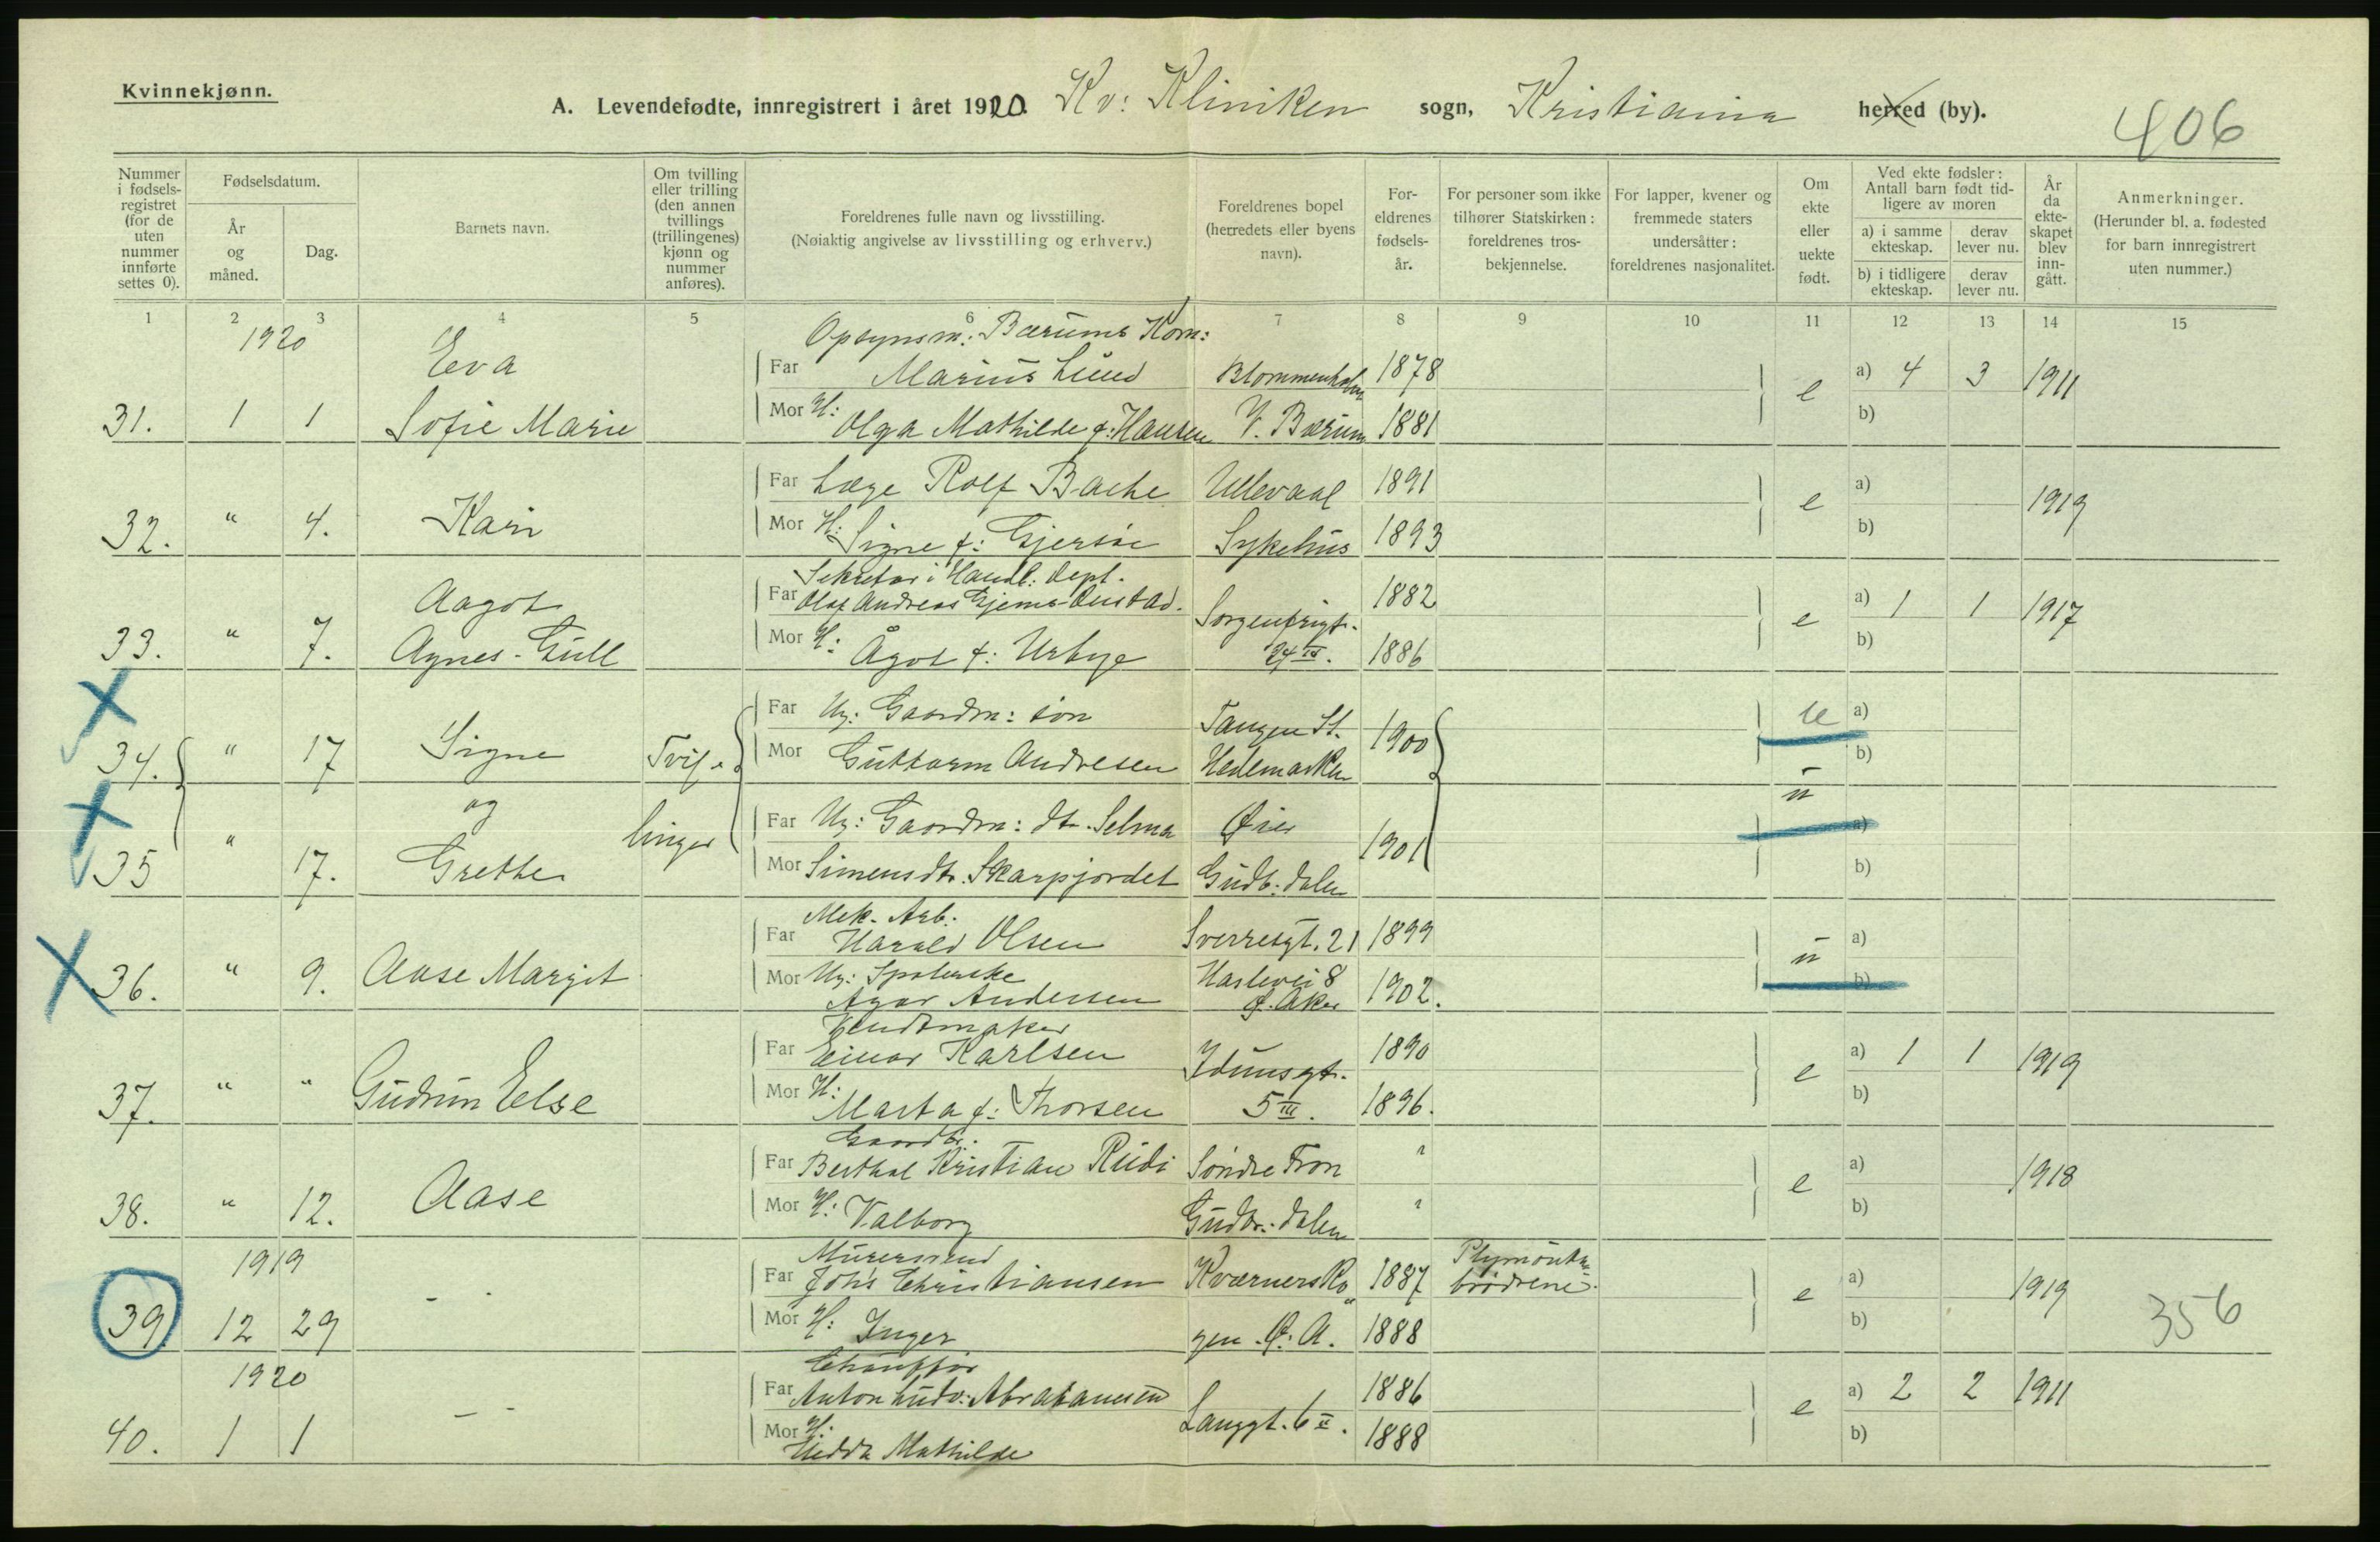 Kvinnekjønn.
A. Levendefødte, innregistrert i året 1920. Kv: Kliniken sogn, Kristiania herred (by).
406
Nummer i fødsels-registret (for de uten nummer innførte settes 0).
Fødselsdatum.
År og måned.
Dag.
Barnets navn.
Om tvilling eller trilling (den annen tvillings (trillingenes) kjønn og nummer anføres).
Foreldrenes fulle navn og livsstilling.
(Nøiaktig angivelse av livsstilling og erhverv.)
Foreldrenes bopel (herredets eller byens navn).
For-eldrenes fødsels-år.
For personer som ikke tilhører Statskirken: foreldrenes tros-bekjennelse.
For lapper, kvener og fremmede staters undersåtter: foreldrenes nasjonalitet.
Om ekte eller uekte født.
Ved ekte fødsler: Antall barn født tid-ligere av moren
a) i samme ekteskap.
derav lever nu.
b) i tidligere ekteskap.
derav lever nu.
År da ekte-skapet blev inn-gått.
Anmerkninger.
(Herunder bl. a. fødested for barn innregistrert uten nummer.)
1 2 3 4 5 6 7 8 9 10 11 12 13 14 15
1920 Opsynsm: Bærums Kom:
Eva Far Marius Lund Blommenholm 1878 e a) 4 3 1911
31. 1 1 Sofie Marie Mor H: Olga Mathilde f: Hansen V. Bærum 1881 b)
Far Læge Rolf Bache Ullevaal 1891 e a) 1919
32. " 4. Kari Mor H: Signe f: Gjersøe Sykehus 1893 b)
Sekretær i Handl: Dept.
Aagot Far Olaf Andreas Gjems-Onstad. Sorgenfrigt. 1882 e a) 1 1 1917
33. " 7. Agnes-Gull Mor H: Ågot f: Urbye 24 IV. 1886 b)
Far Ug: Gaardm: søn Tangen St. 1900 u a)
34. " 17 Signe Tvil- Mor Guttorm Andresen Hedemarken b)
og
Far Ug: Gaardm: dt. Selma Øier 1901 u a)
35 " 17. Grethe linger Mor Simensdt. Skarpjordet Gudb: dalen b)
Mek. Arb.
Far Harald Olsen Sverresgt. 21 1899 u a)
36. " 9. Aase Margit Mor Ug: Spolerske Haslevei 8 1902. b)
Agar Andersen Ø. Aker
Far Einar Karlsen Idunsgt. 1890 e a) 1 1 1919
37. " " Gudrun Else Mor H: Marta f: Thorsen 5 III. 1896. b)
Gaardbr.
Far Berthal Kristian Rudi Søndre Fron ? e a) 1918
38. " 12. Aase Mor H: Valborg Gudbr: dalen ? b)
1919 Murersvend Plymouth-
Far Johs Christiansen Kværnersko 1887 brødrene. e a) 1919
39. 12 29 - - Mor H: Inger gen. Ø. A. 1888 b) 356
1920 Chauffør
Far Anton Ludv: Abrahamsen Langgt. 6 II. 1886 e a) 2 2 1911
40. 1 1 - - Mor H: Hedda Mathilde 1888 b)